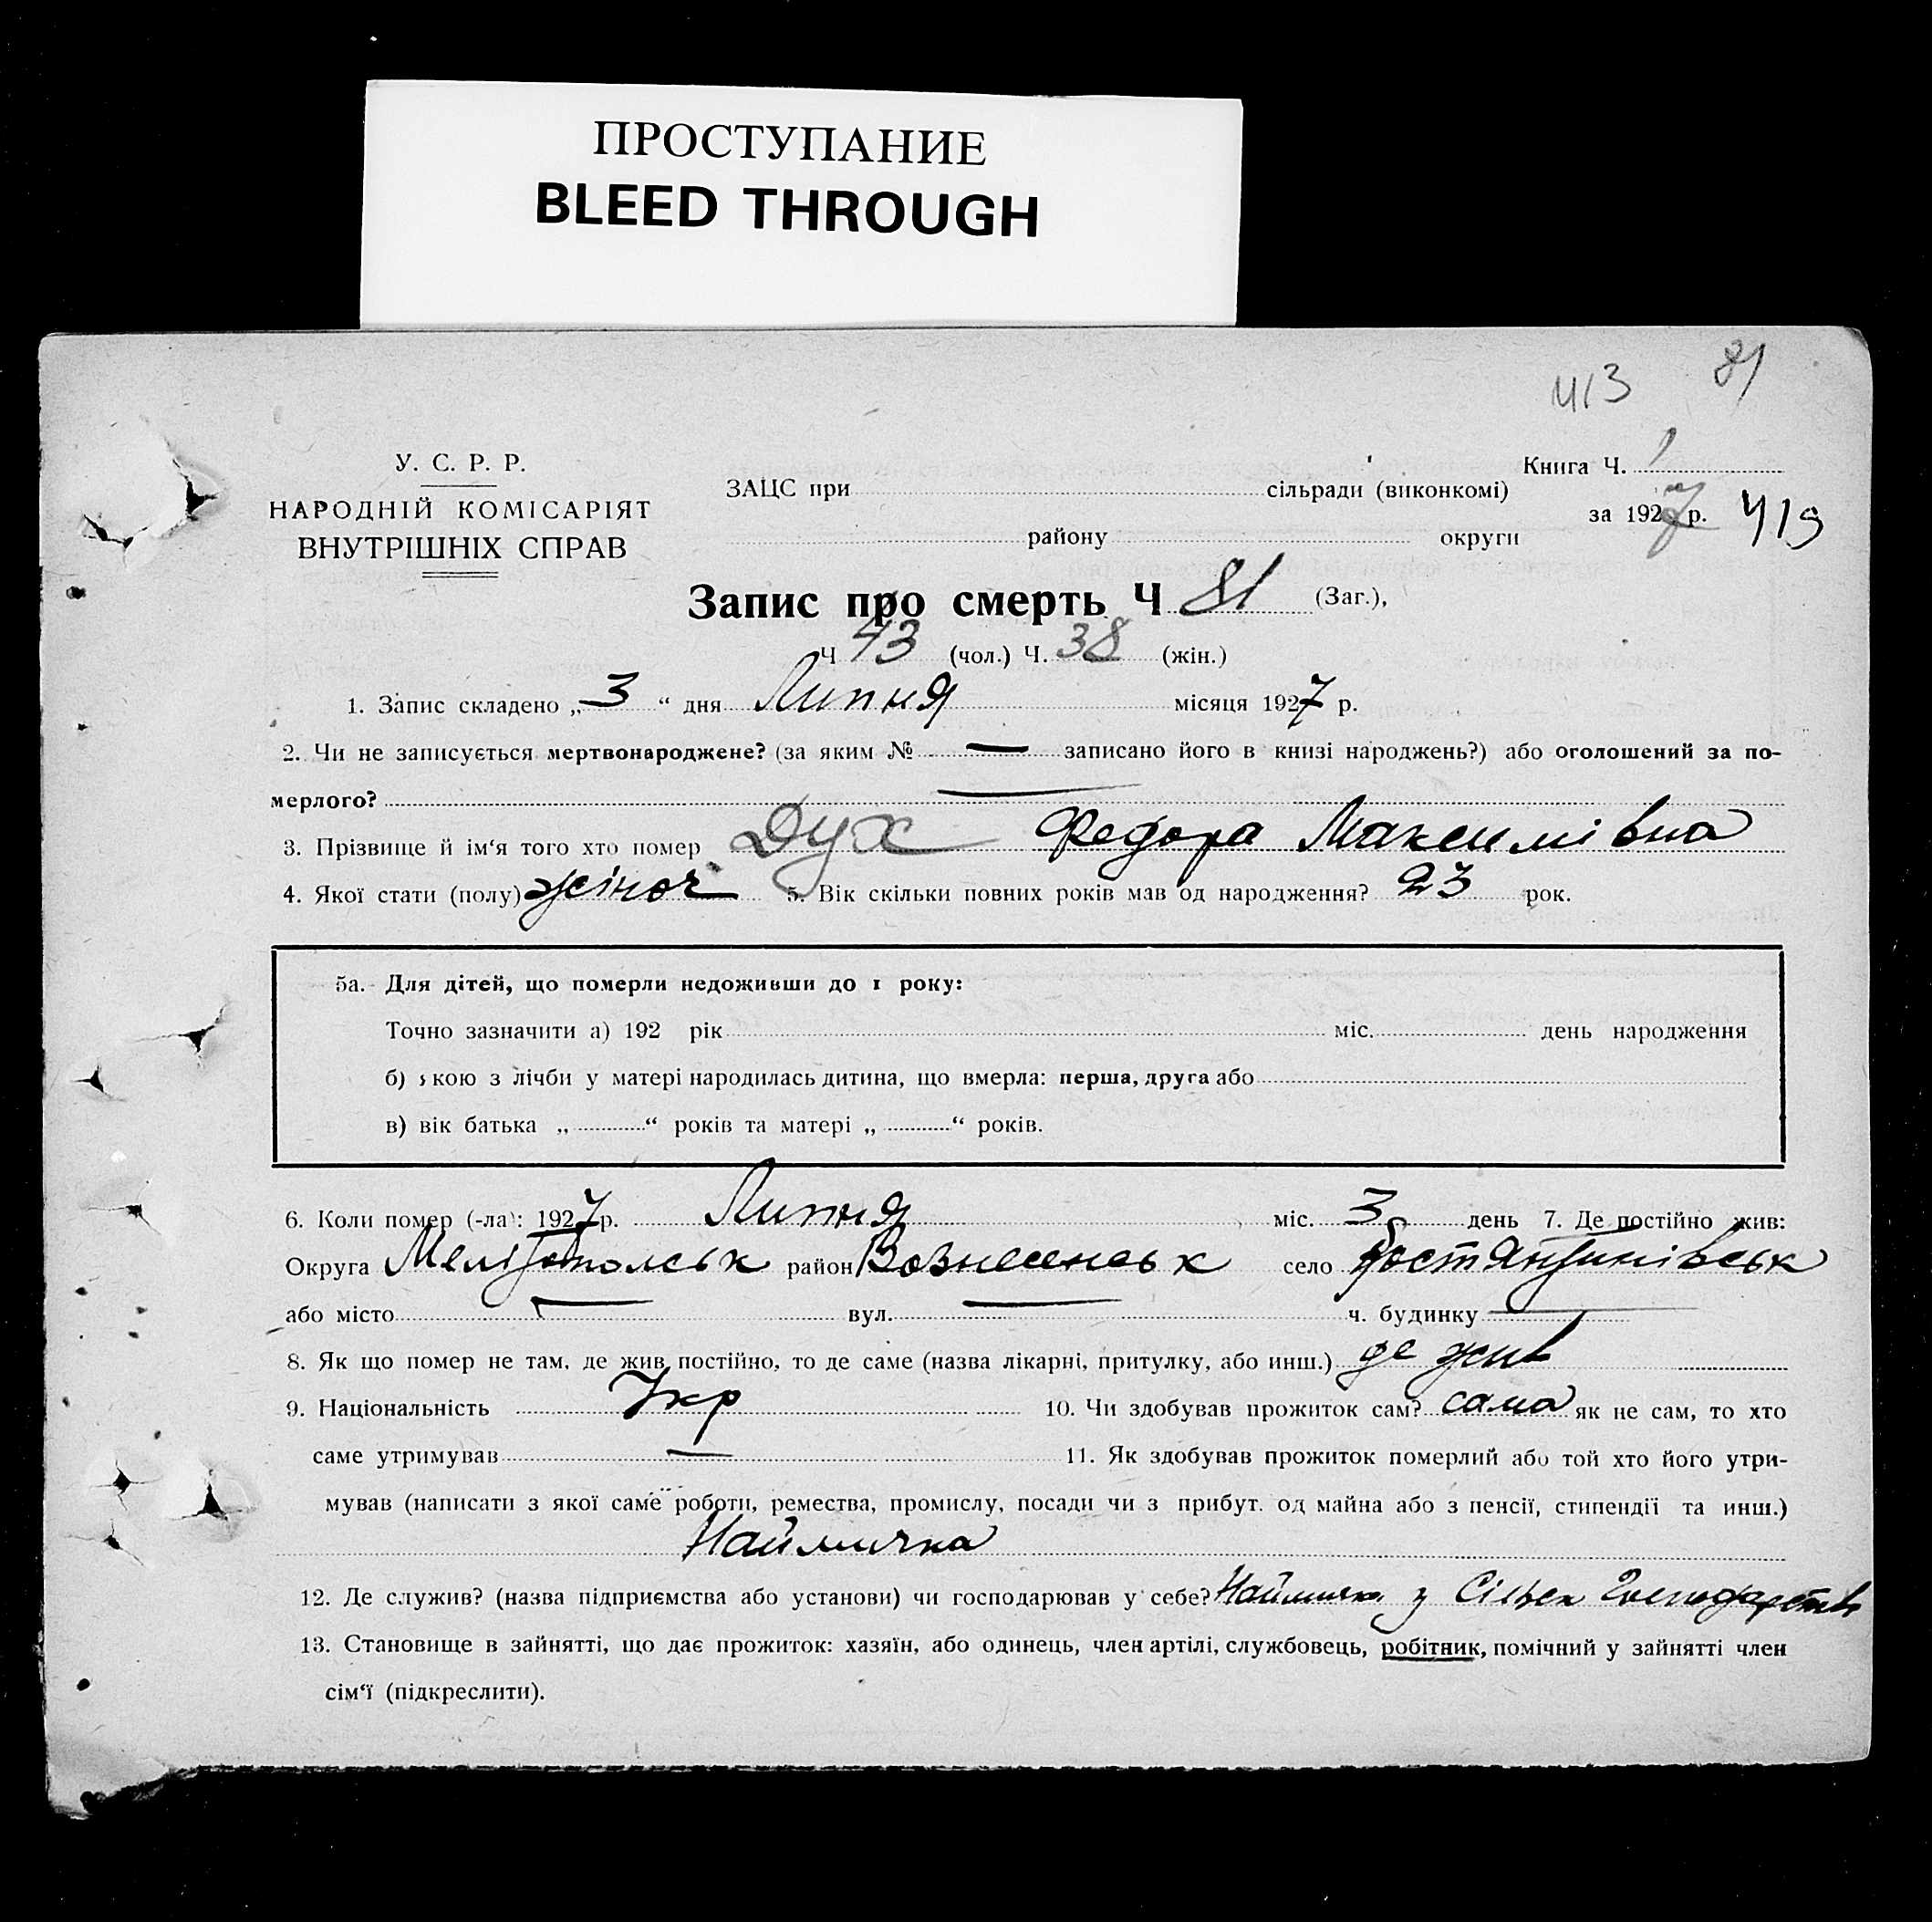 ПРОСТУПАНИЕ
BLEED THROUGH
413 81
У. С. Р. Р.
НАРОДНІЙ КОМІСАРІЯТ
ВНУТРІШНІХ СПРАВ
Книга Ч. 1
ЗАЦС при сільради (виконкомі)
за 1927 р. 419
району округи
Запис про смерть Ч 81 (Заг.),
Ч 43 (чол.) Ч. 38 (жін.)
1. Запис складено „3“ дня Липня місяця 1927 р.
2. Чи не записується мертвонароджене? (за яким № — записано його в книзі народжень?) або оголошений за по-
мерлого? —
3. Прізвище й ім‘я того хто помер Дух Федора Максимівна
4. Якої стати (полу) жіноч 5. Вік скільки повних років мав од народження? 23 рок.
5а. Для дітей, що померли недоживши до 1 року:
Точно зазначити а) 192 рік міс. день народження
б) якою з лічби у матері народилась дитина, що вмерла: перша, друга або
в) вік батька „ “ років та матері „ “ років.
6. Коли помер (-ла): 1927 р. Липня міс. 3 день 7. Де постійно жив:
Округа Мелітопольськ район Вознесенськ село Костянтинівськ
або місто — вул. — ч. будинку —
8. Як що помер не там, де жив постійно, то де саме (назва лікарні, притулку, або инш.) де жив
9. Національність Укр 10. Чи здобував прожиток сам? сама як не сам, то хто
саме утримував — 11. Як здобував прожиток померлий або той хто його утри-
мував (написати з якої саме роботи, ремества, промислу, посади чи з прибут. од майна або з пенсії, стипендії та инш.)
Наймичка
12. Де служив? (назва підприємства або установи) чи господарював у себе? Наймичк. у Сільск Господарстві
13. Становище в зайнятті, що дає прожиток: хазяїн, або одинець, член артілі, службовець, робітник, помічний у зайнятті член
сім‘ї (підкреслити).